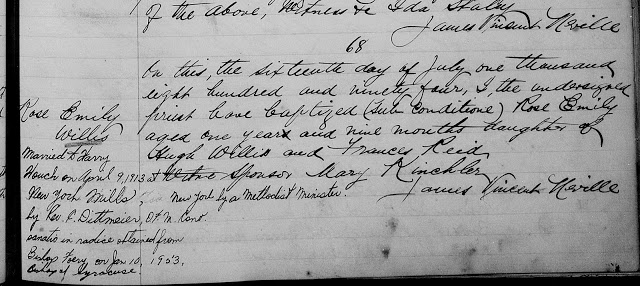 of the above, Witness Ida Staley
James Vincent Neville
68
On this, the sixteenth day of July one thousand
eight hundred and ninety four, I, the undersigned
priest have baptized (sub conditione) Rose Emily
aged one year and nine months daughter of
Hugh Willis and Frances Reid
sponsor Mary Kinchler
James Vincent Neville
Rose Emily
Willis
Married to Harry
Houck on April 9, 1913 at Utica
New York Mills, New York by a Methodist Minister.
by Rev. F. Dittmeier, O.F.M. Conv.
sanatio in radice obtained from
Bishop Foery on Jan 10, 1953,
Bishop of Syracuse